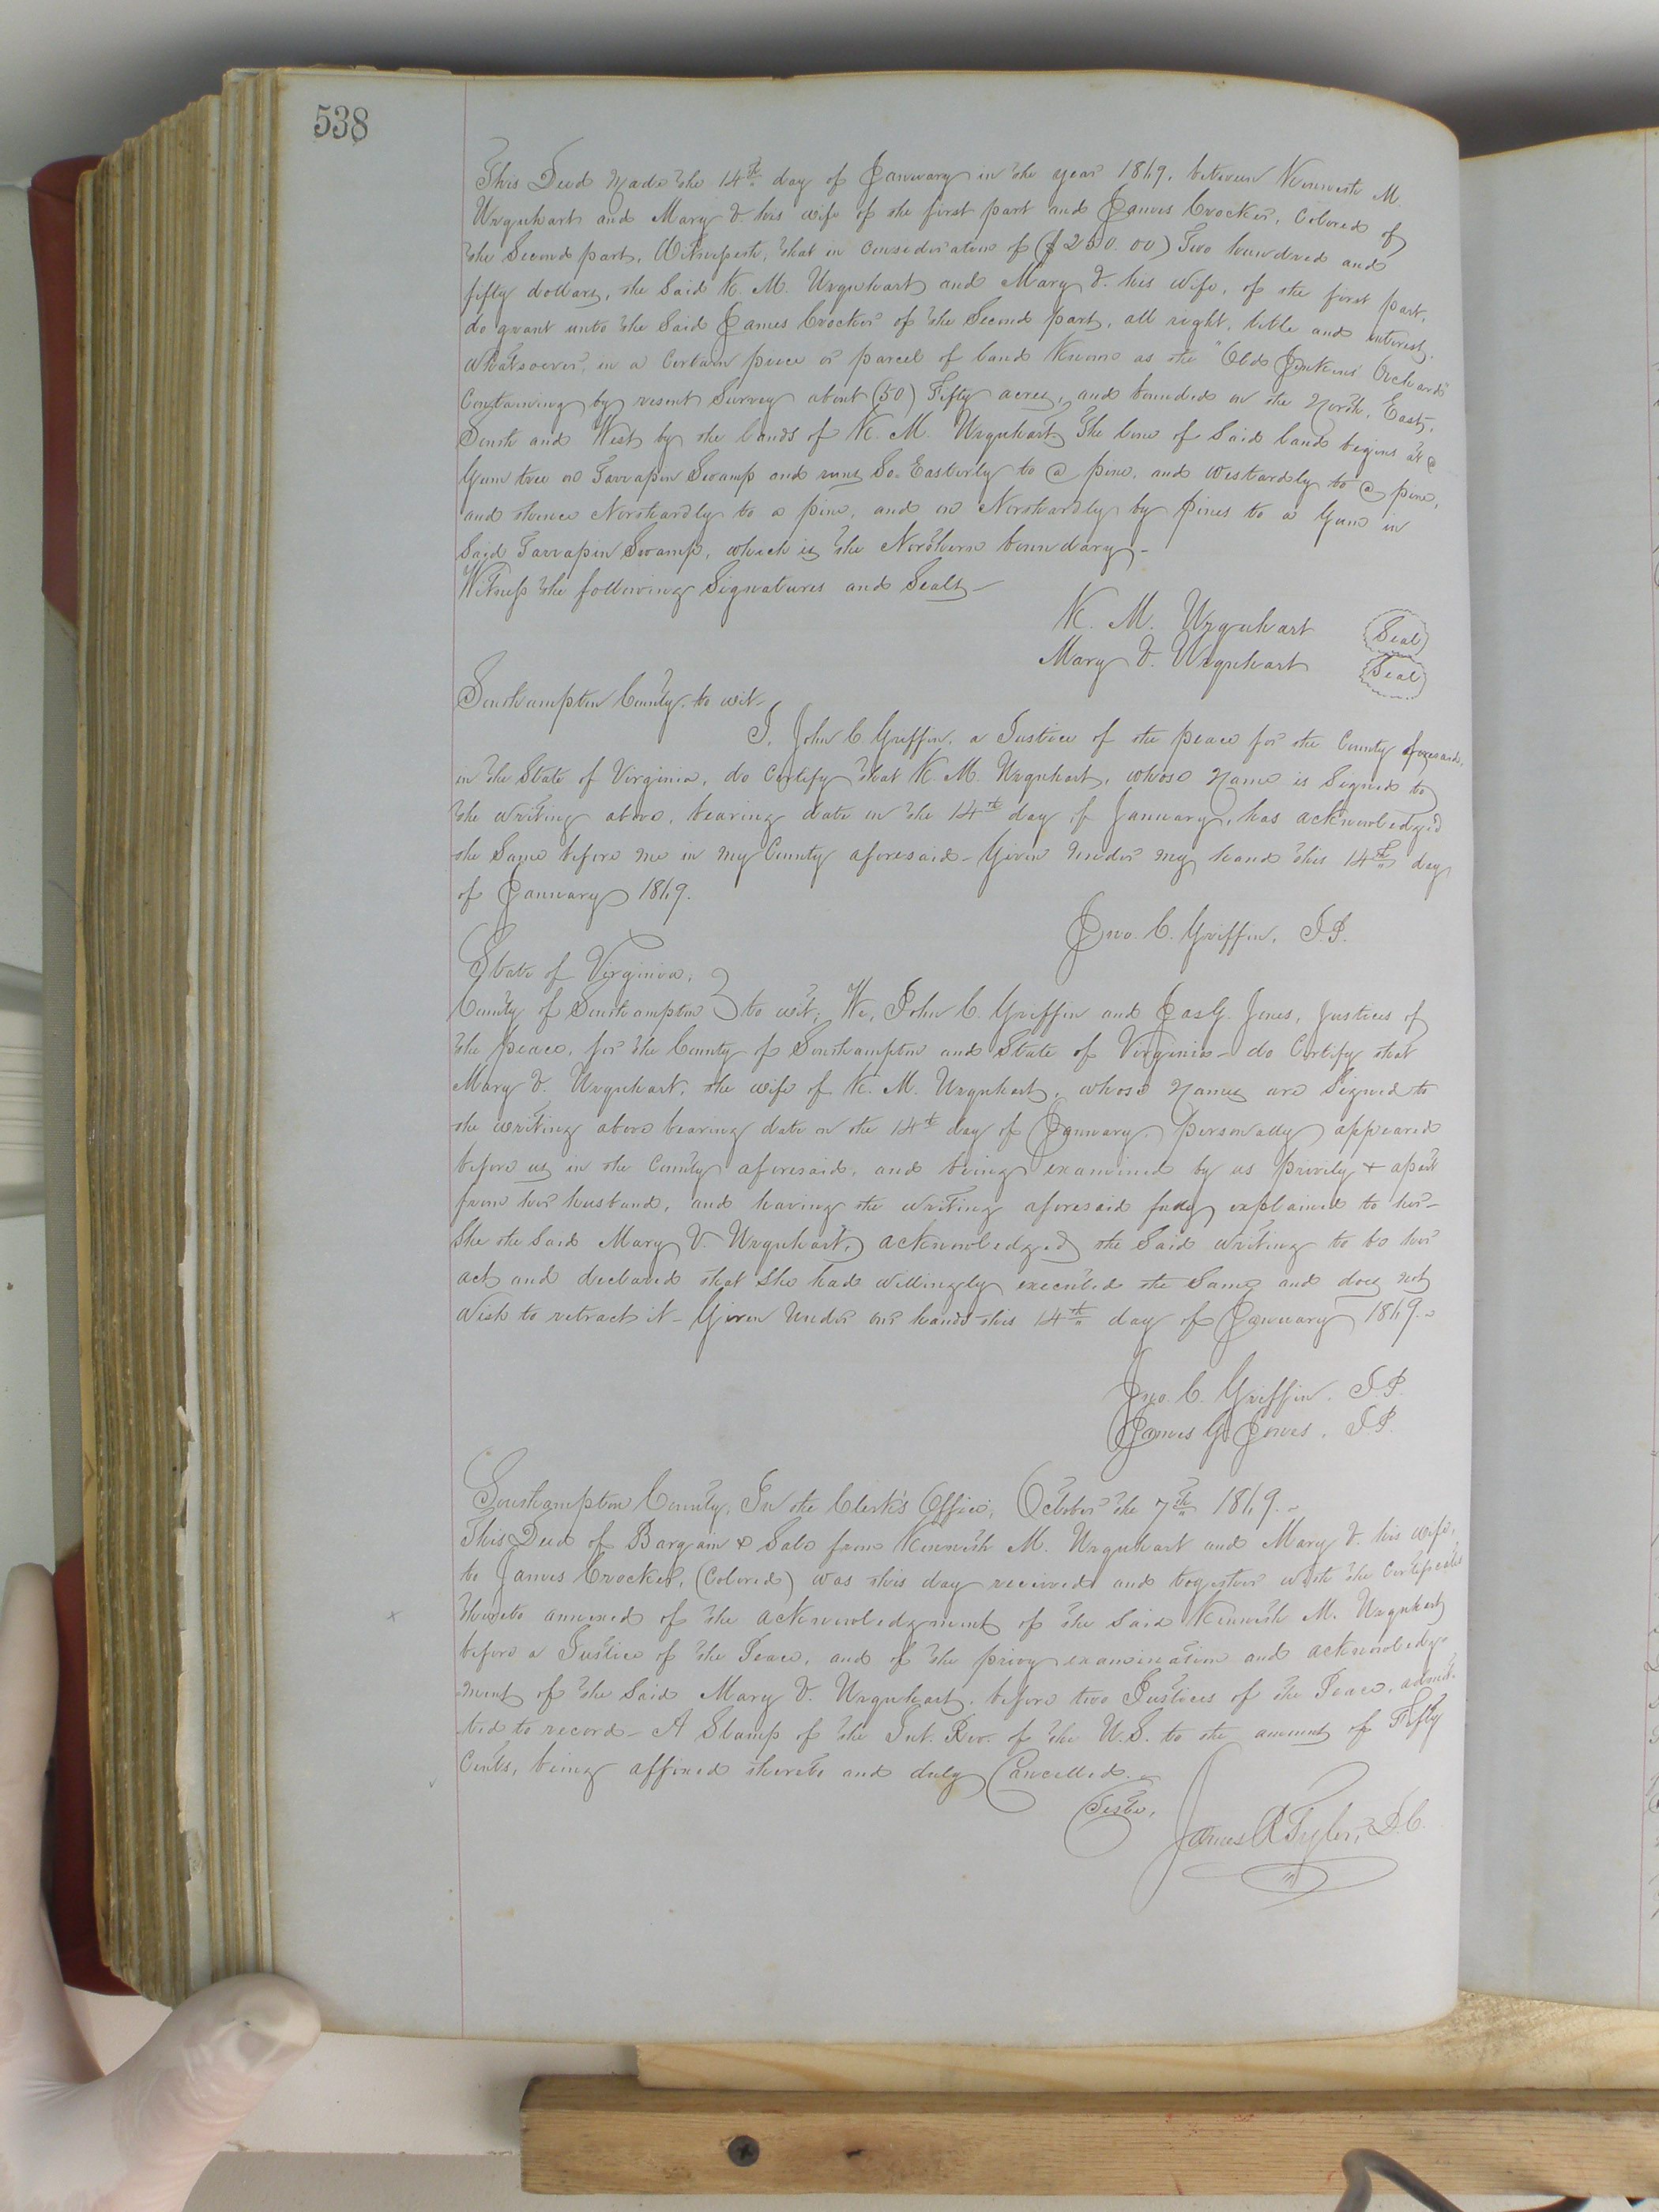 538
This Deed made the 14th day of January in the year 1869, between Kenneth M.
Urquhart and Mary V. his wife of the first part and James Crocker, Colored of
the Second part, Witnesseth, that in consideration of ($250.00) Two hundred and
fifty dollars, the Said K. M. Urquhart and Mary V. his wife, of the first part,
do grant unto the Said James Crocker of the Second part, all right, title and interest,
whatsoever, in a Certain piece or parcel of land Known as the "Old Jenkins' Orchard"
Containing by resent Survey about (50) Fifty acres, and bounded on the North, East,
South and West by the lands of K. M. Urquhart The line of Said land begins at a
Gum tree on Tarrapin Swamp and runs So. Easterly to a pine, and Westardly to a pine,
and thence Northardly to a pine, and on Northardly by pines to a Gum in
Said Tarrapin Swamp, which is the Northern boundary -
Witness the following Signatures and Seals -
K. M. Urquhart Seal
Mary V. Urquhart Seal
Southampton County, to wit -
I, John C Griffin, a Justice of the peace for the County aforesaid,
in the State of Virginia, do Certify that K. M. Urquhart, whose name is Signed to
the writing above, bearing date on the 14th day of January, has acknowledged
the Same before me in my County aforesaid - Given under my hand this 14th day
of January 1869.
Jno. C. Griffin, J.P.
State of Virginia,
County of Southampton } to wit; We, John C. Griffin and Jas G. Jones, Justices of
the peace, for the County of Southampton and State of Virginia - do Certify that
Mary V. Urquhart, the wife of K. M. Urquhart, whose names are Signed to
the writing above bearing date on the 14th day of January, personally appeared
before us in the County aforesaid, and being examined by us privily + apart
from her husband, and having the writing aforesaid fully explained to her -
She the Said Mary V. Urquhart, acknowledged the Said writing to be her
act and declared that She had willingly executed the Same and does not
Wish to retract it - Given Under our hands this 14th day of January 1869. -
Jno. C. Griffin. J.P.
James G. Jones, J.P.
Southampton County, In the Clerk's Office, October the 7th 1869. -
This Deed of Bargain & Sale from Kenneth M. Urquhart and Mary V. his wife,
to James Crocker, (Colored) was this day received and together with the Certificates
thereto annexed of the acknowledgment of the Said Kenneth M. Urquhart
before a Justice of the Peace, and of the privy examination and acknowledg-
ment of the Said Mary V. Urquhart, before two Justices of the Peace, admit-
ted to record - A Stamp of the Int. Rev. of the U.S. to the amount of Fifty
Cents, being affixed thereto and duly Cancelled. -
Teste,
James A Tyler, D.C.